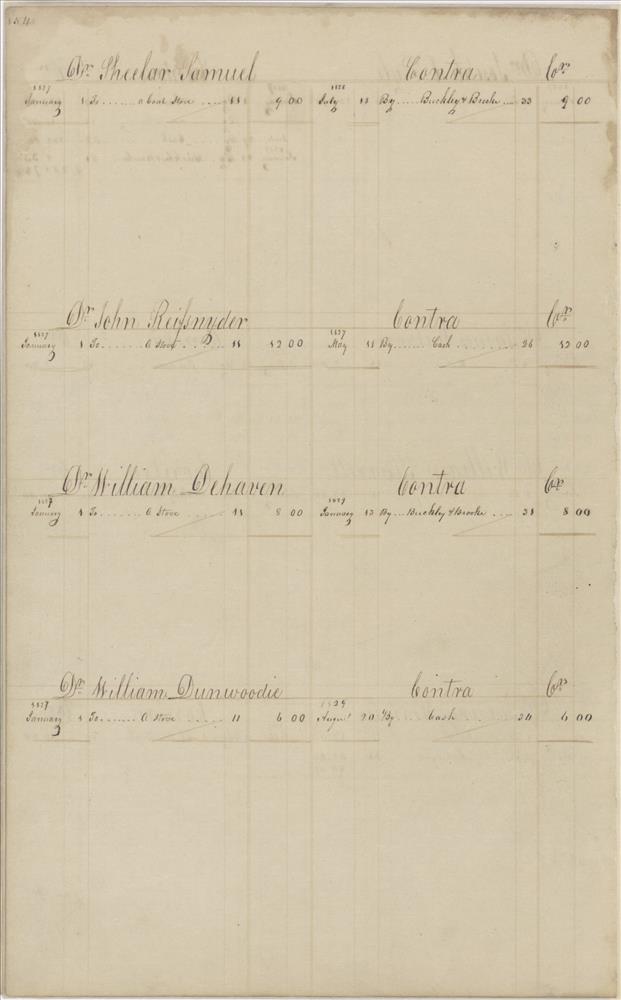 Dr. Sheelar Samuel Contra Cr.
1827 1828
January 1 To ...... a Coal Stove .... 11 9 00 July 11 By .... Buckley & Brooke ... 33 9 00
Dr. John Reifsnyder Contra Cr.
1827 1827
January 1 To ...... a Stove .... 11 12 00 May 11 By ...... Cash ........ 26 12 00
Dr. William Dehaven Contra Cr.
1827 1829
January 1 To ...... a Stove .... 11 8 00 January 13 By ... Buckley & Brooke .... 8 00
Dr. William Dunwoodie Contra Cr.
1827 1829
January 1 To ...... a Stove ..... 11 6 00 August 20 By Cash 6 00